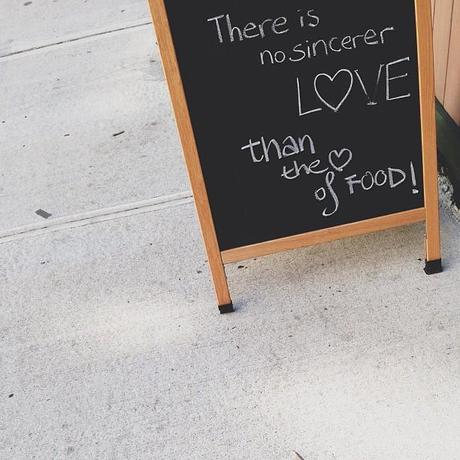 There is
no sincerer
L♡VE
than
the ♡
of FOOD!